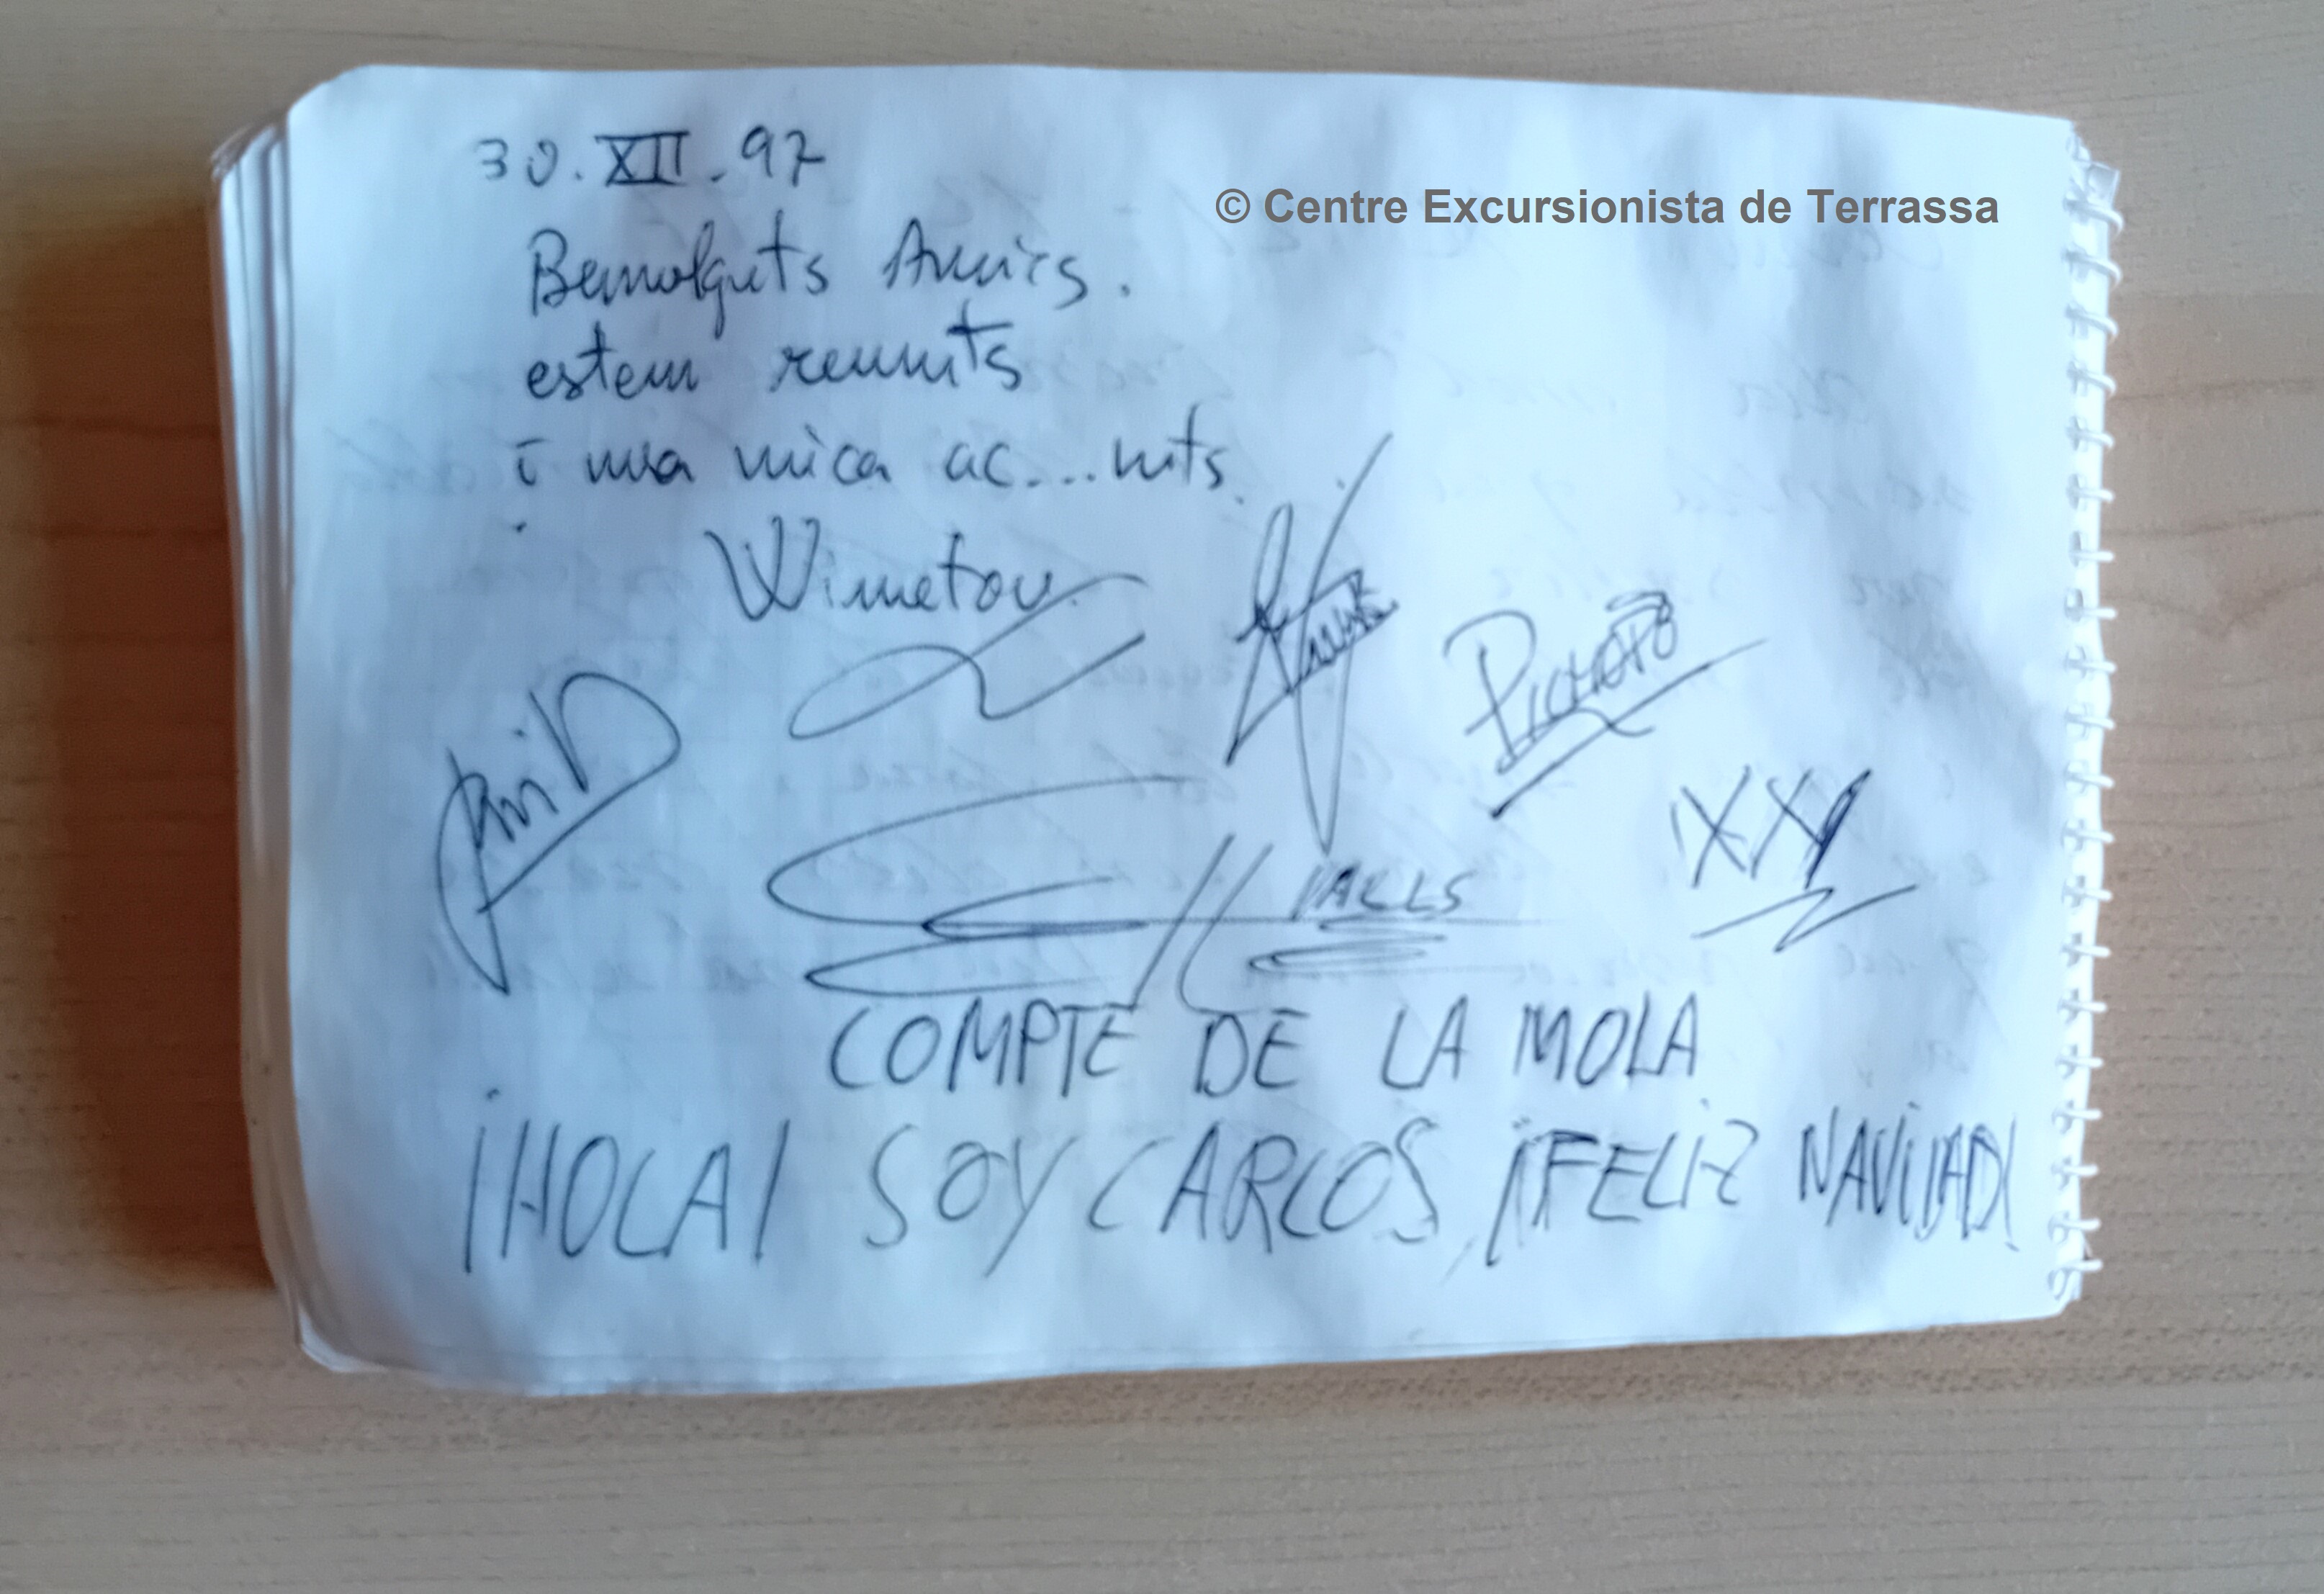 30.XII.97
© Centre Excursionista de Terrassa
Benvolguts Amics.
estem reunits
i una mica ac...nits.
Winnetou
VALLS
XXI
COMPTE DE LA MOLA
¡HOLA! SOY CARLOS, ¡FELIZ NAVIDAD!